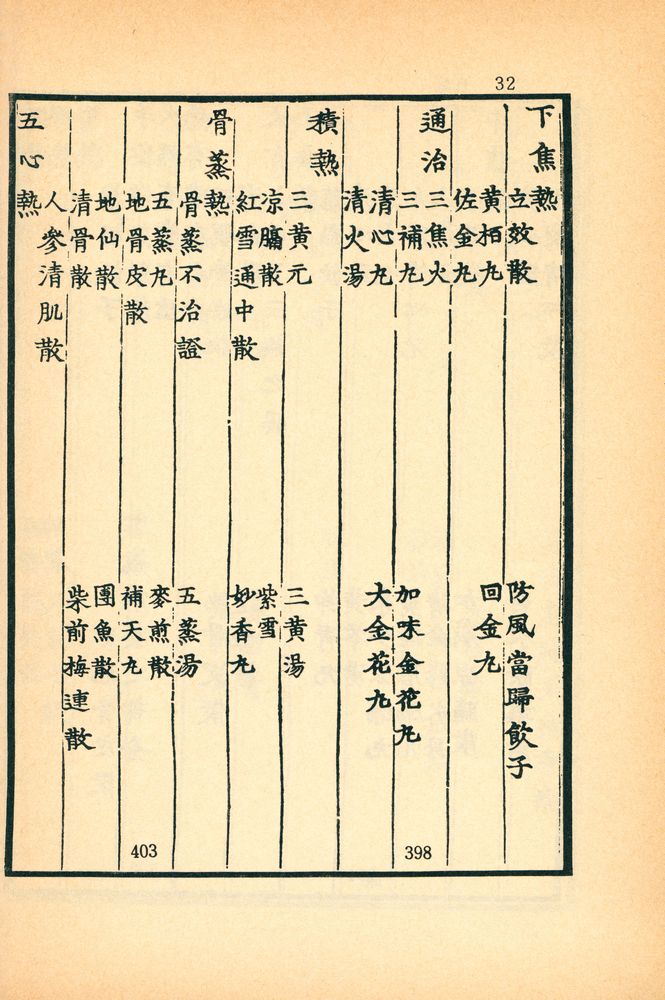 32
下焦熱
立效散 防風當歸飲子
黃栢丸 回金丸
佐金丸
通治
三焦火
三補丸 加味金花丸
清心丸 大金花丸
清火湯
積熱
三黃元 三黃湯
凉膈散 紫雪
紅雪通中散 妙香丸
骨蒸熱
骨蒸不治證 五蒸湯
五蒸丸 麥煎散
地骨皮散 補天丸
地仙散 團魚散
清骨散 柴前梅連散
五心熱
人參清肌散
398
403